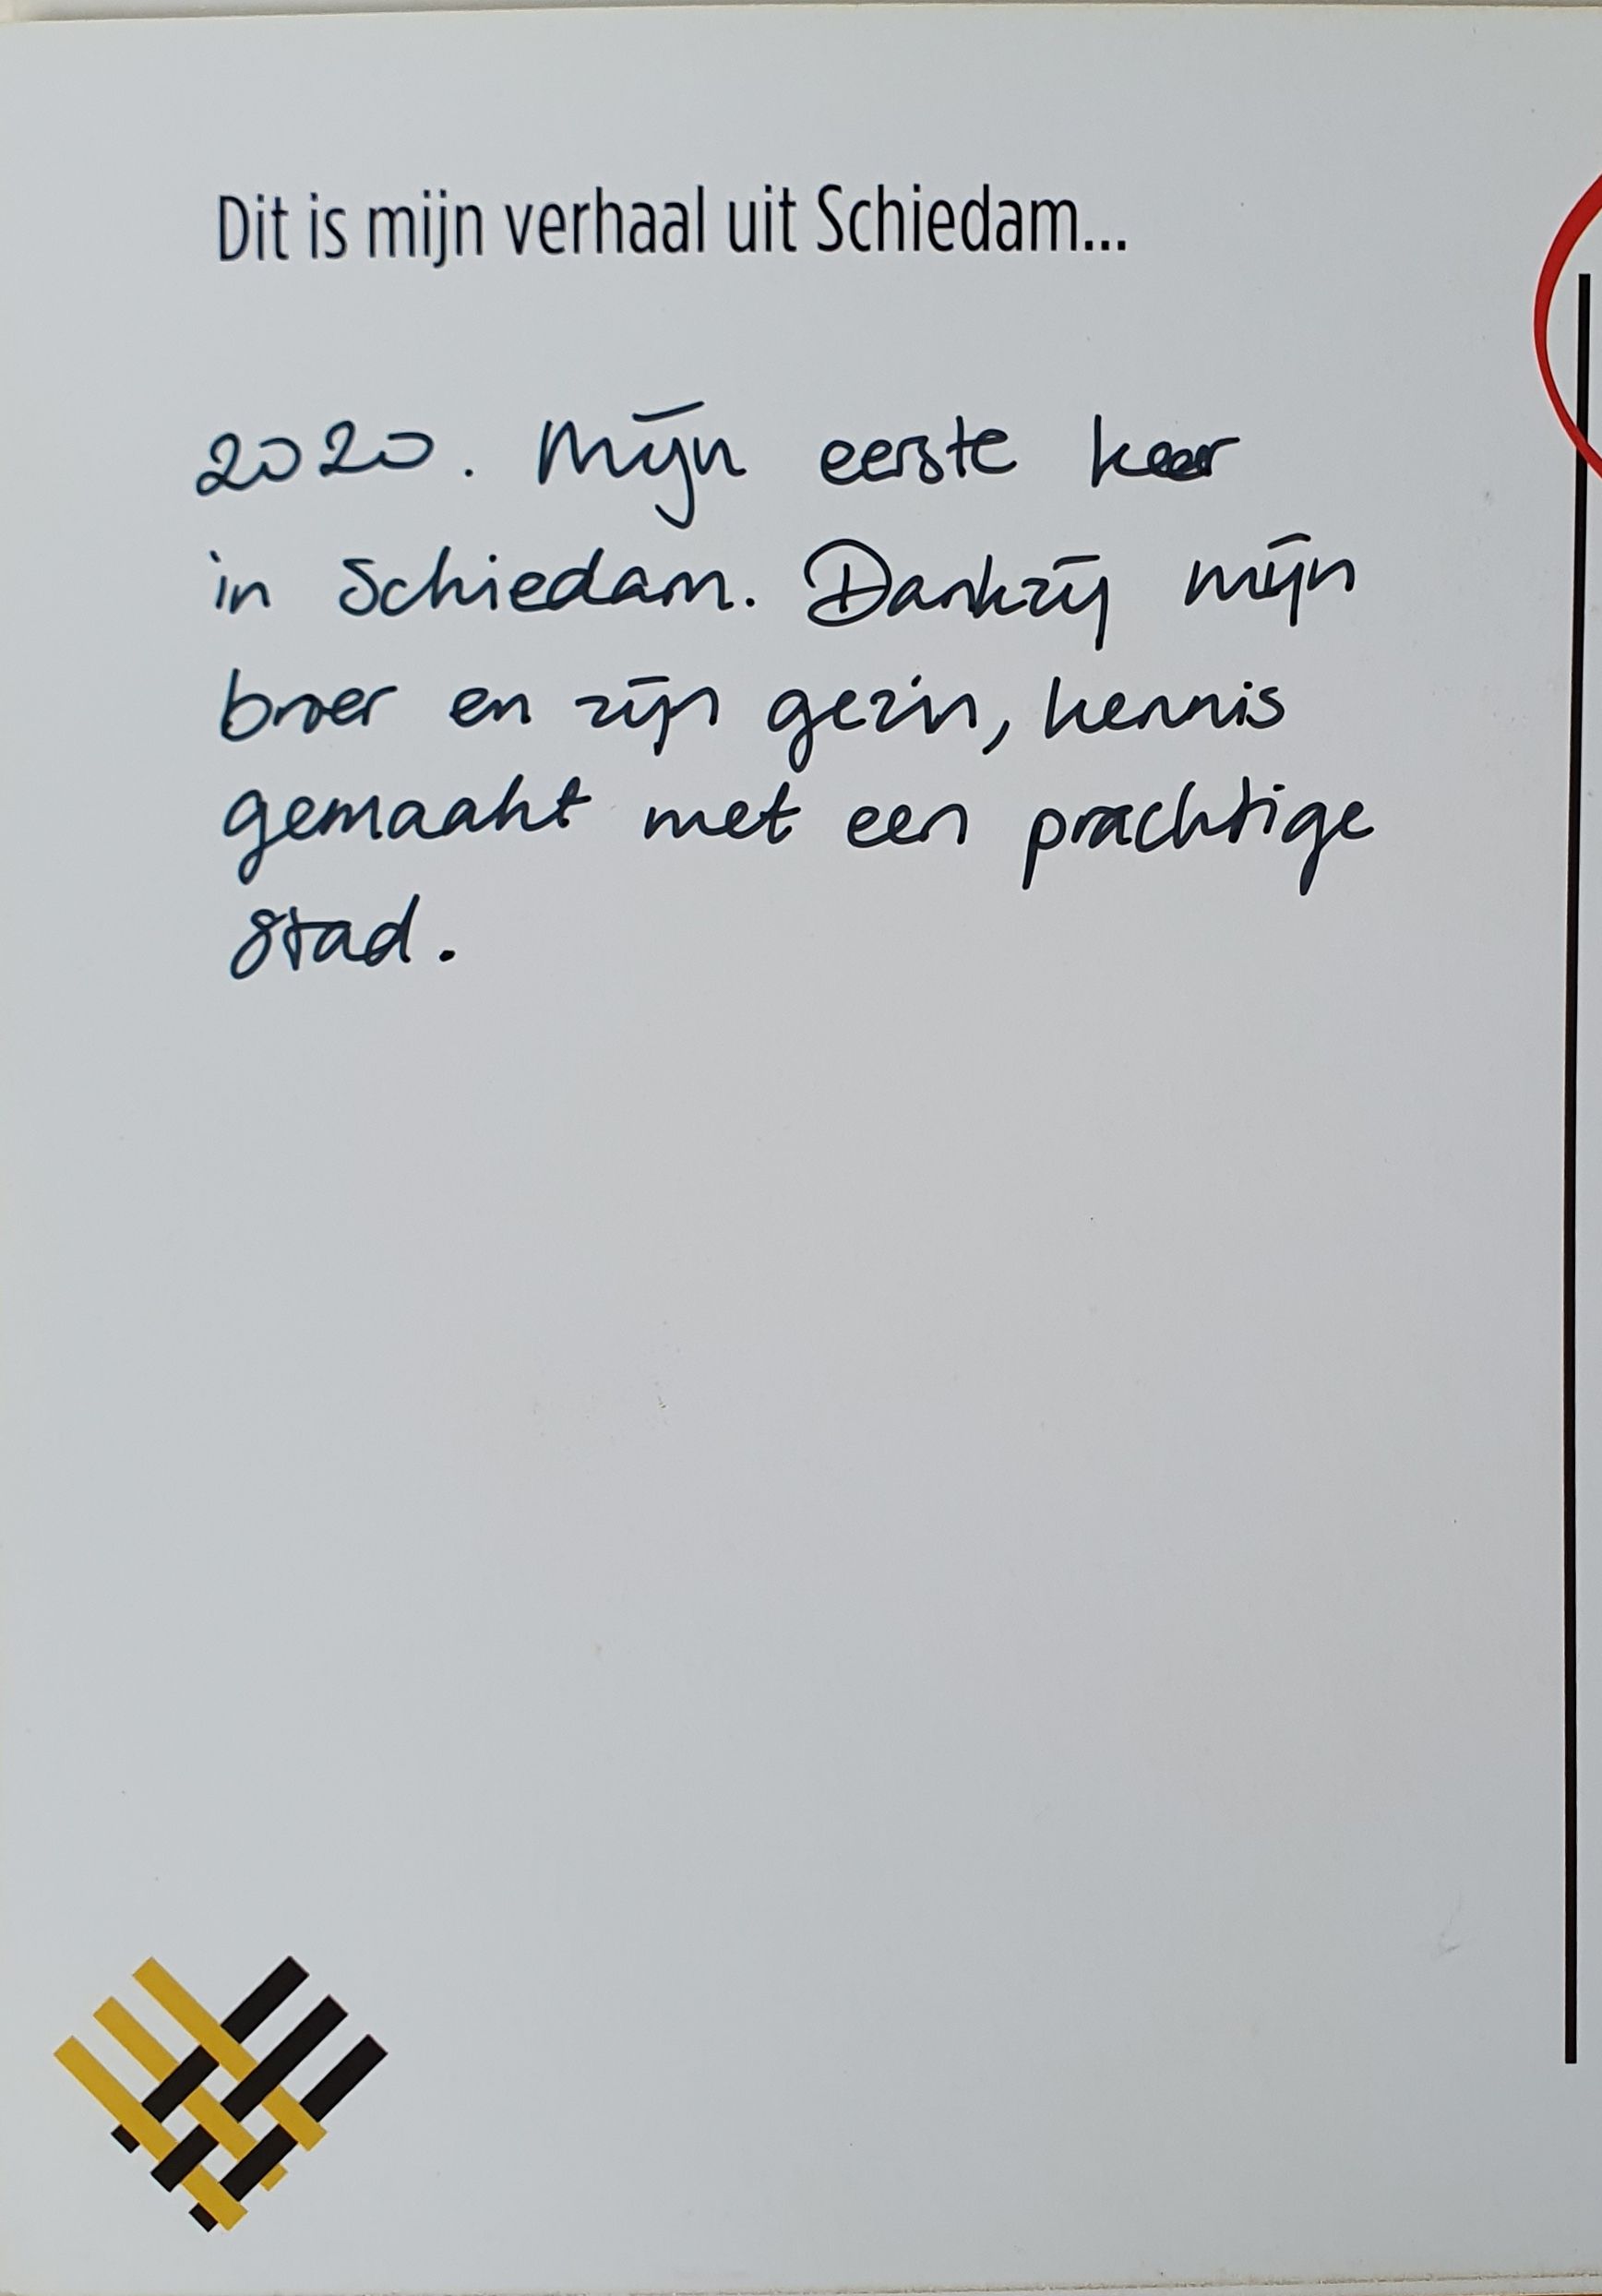 Dit is mijn verhaal uit Schiedam...
2020. Mijn eerste keer
in Schiedam. Dankzij mijn
broer en zijn gezin, kennis
gemaakt met een prachtige
stad.